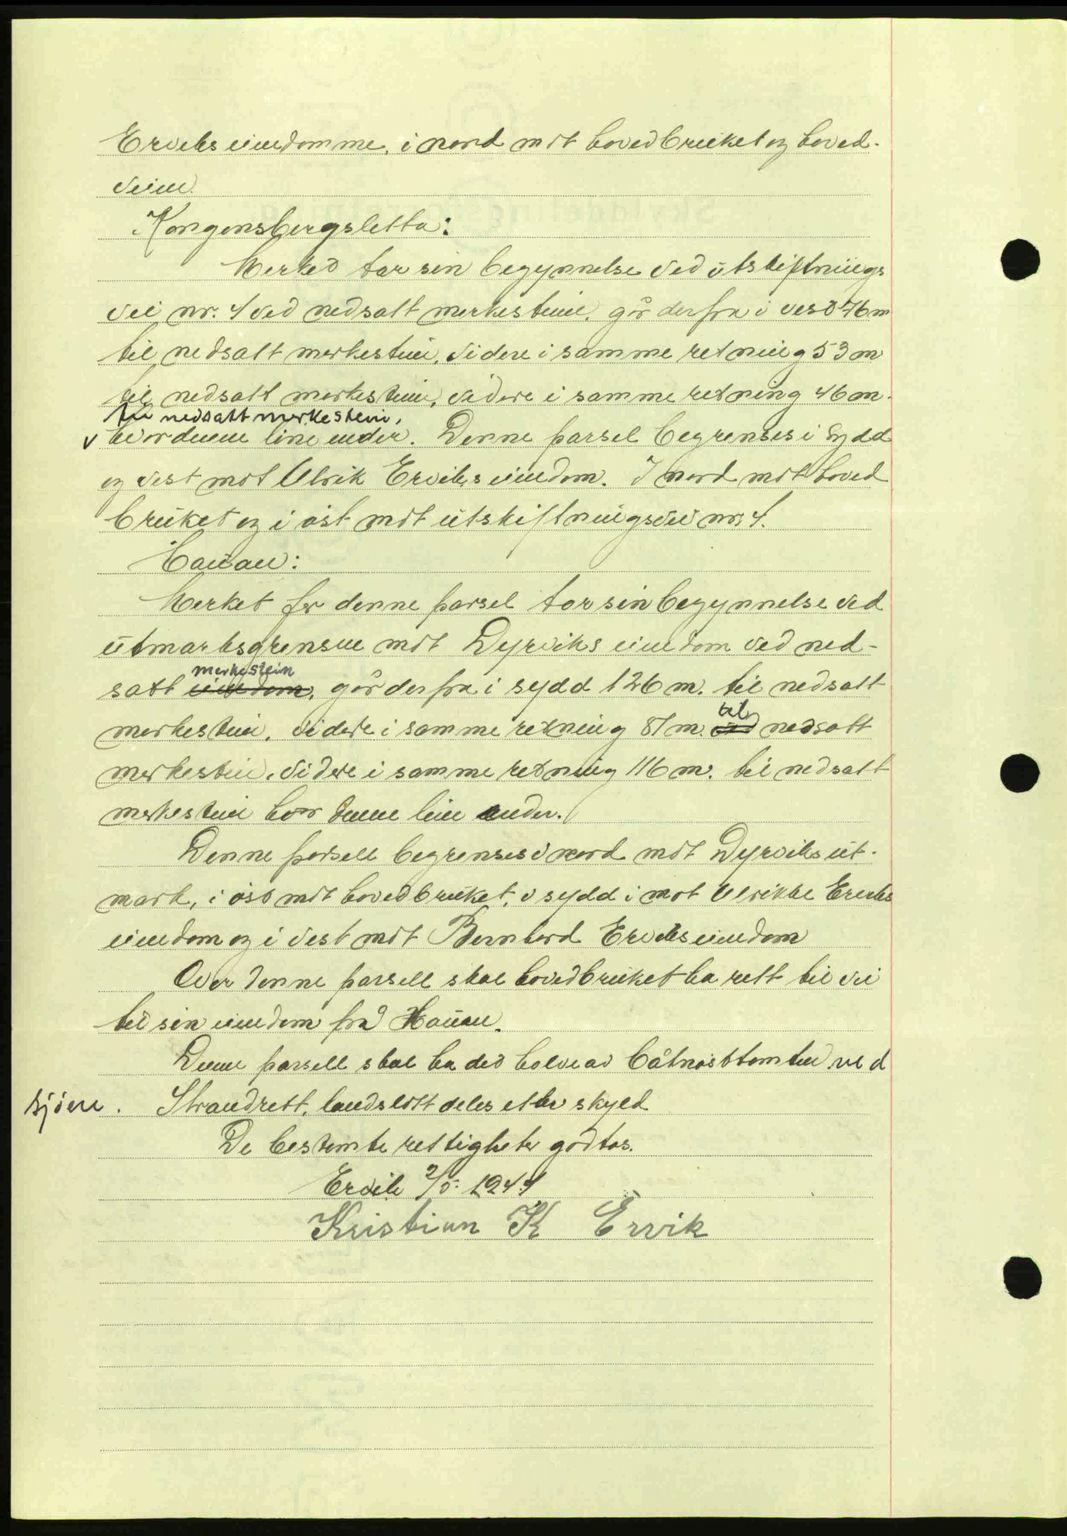 Erviks eiendomme, i nord mot hovedbruket og hoved-
veien.
Kongensbergsletta:
Merket tar sin begynnelse ved utskiftnings
vei nr. 4 ved nedsatt merkestein, går derfra i vest 76 m
til nedsatt merkestein, videre i samme retning 53 m
til nedsatt merkestein, videre i samme retning 46 m.
til nedsatt merkestein,
hvor denne line ender. Denne parsel begrenses i sydd
og vest mot Ulrik Erviks eiendom. I nord mot hoved
bruket og i øst mot utskiftningsvei nr. 4.
Hauan:
Merket for denne parsel tar sin begynnelse ved
utmarksgrensen mot Dyrviks eiendom ved ned-
merkestein
satt eiendom, går derfra i sydd 126 m. til nedsatt
merkestein, videre i samme retning 81 m. til nedsatt
merkestein, videre i samme retning 116 m. til nedsatt
merkestein hvor denne line ender.
Denne parsell begrenses i nord mot Dyrviks ut-
mark, i øst mot hovedbruket, i sydd i mot Ulrikke Erviks
eiendom og i vest mot Bernhard Erviks eiendom
Over denne parsell skal hovedbruket ha rett til vei
til sin eiendom fra Hauan.
Denne parsell skal ha det halve av båtnosttomten ved
sjøen. Strandrett, landslott deles etter skyld
De bestemte rettigheter godtas.
Ervik 2/5. 1944
Kristian K Ervik